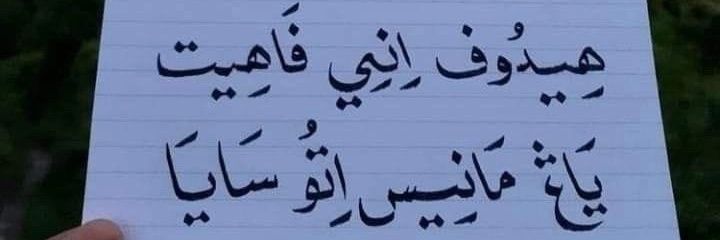 هِيدُوف اِنِي فَاهِيت
يَاڠ مَانِيس اِتُو سَايَا